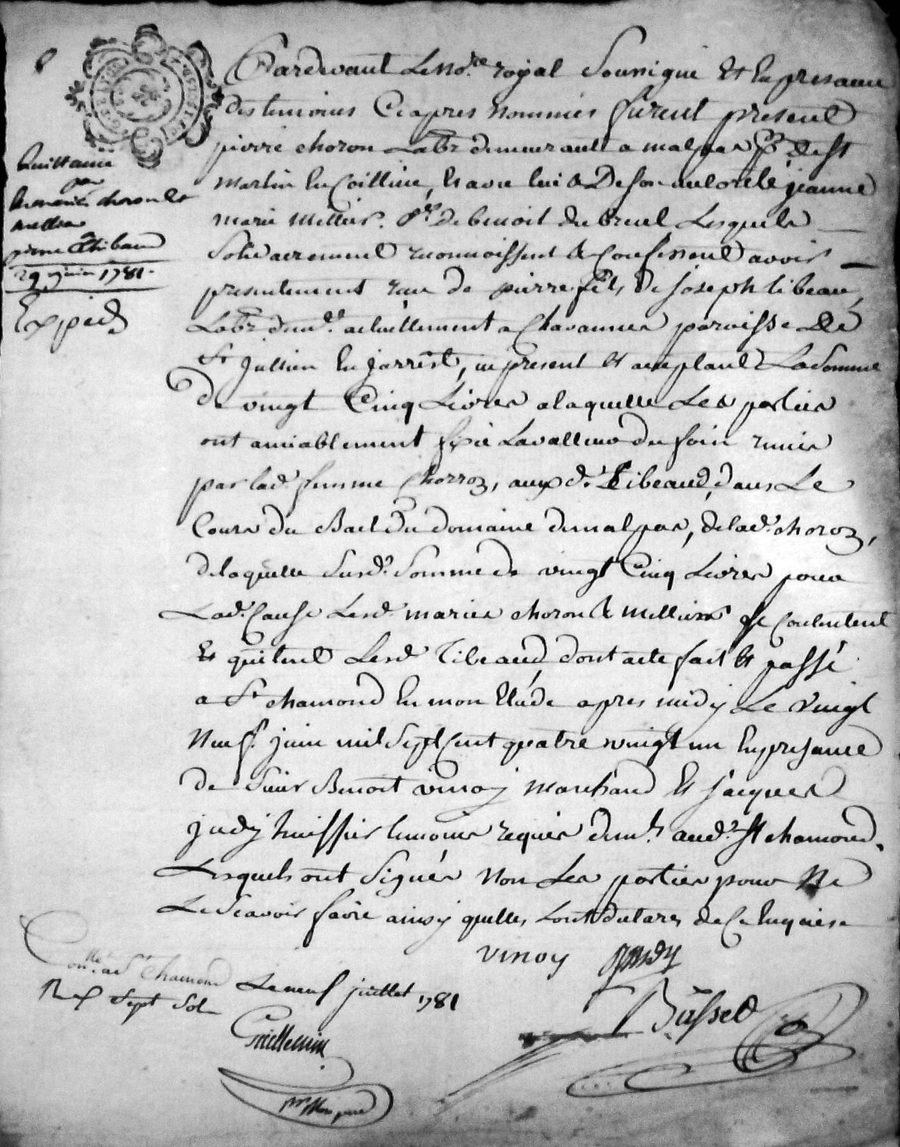 Pardevant Le No.re royal Soussigné Et En presance
des temoins Cy apres nommés furent present
pierre choron Lab.r demeurant a malpas p.sse de St
martin En Coillieu, Et avec lui & De Son autorité jeanne
marie Mellier. v.ve De benoit du breuil Lesquels
Solidairement reconnoissent & Confessent avoir
presentement reçu de pierre fils de joseph tibeau,
Lab.r dem.t actuellement a Chavannes paroisse De
St jullien En jarrest, icy present Et acceptant La Somme
De vingt Cinq Livres a laquelle Les parties
ont amiablement fixé La valleur du foin remis
par lad. femme Chorroz, aux d. Tibeaud, dans Le
Cours du Bail du domaine de malpas, de lad. choroz,
de laquelle Susd. Somme de vingt Cinq Livres pour
Lad. Cause Lesd. mariés choron & Mellier Se Contentent
Et quittent Lesd. Tibeaud, dont acte fait & passé
a St chamond En mon Etude apres midy Le vingt
Neuf juin mil Sept Cent quatre vingt un En presance
de Sieur Benoit vinoy Marchand Et jacques
judy huissier temoins requis dem.ts aud. St chamond.
Lesquels ont Signés Non Les parties pour Ne
Le Scavoir faire ainsy quelles ont declaré de Ce Enquise
vinoy judy
Bussed
Quittance
par
choron &
mellier
pierre Thibaud
29 juin 1781.
Expédié
Con.llé a St chamond Le neuf juillet 1781
R. Sept Sols
Guillemin